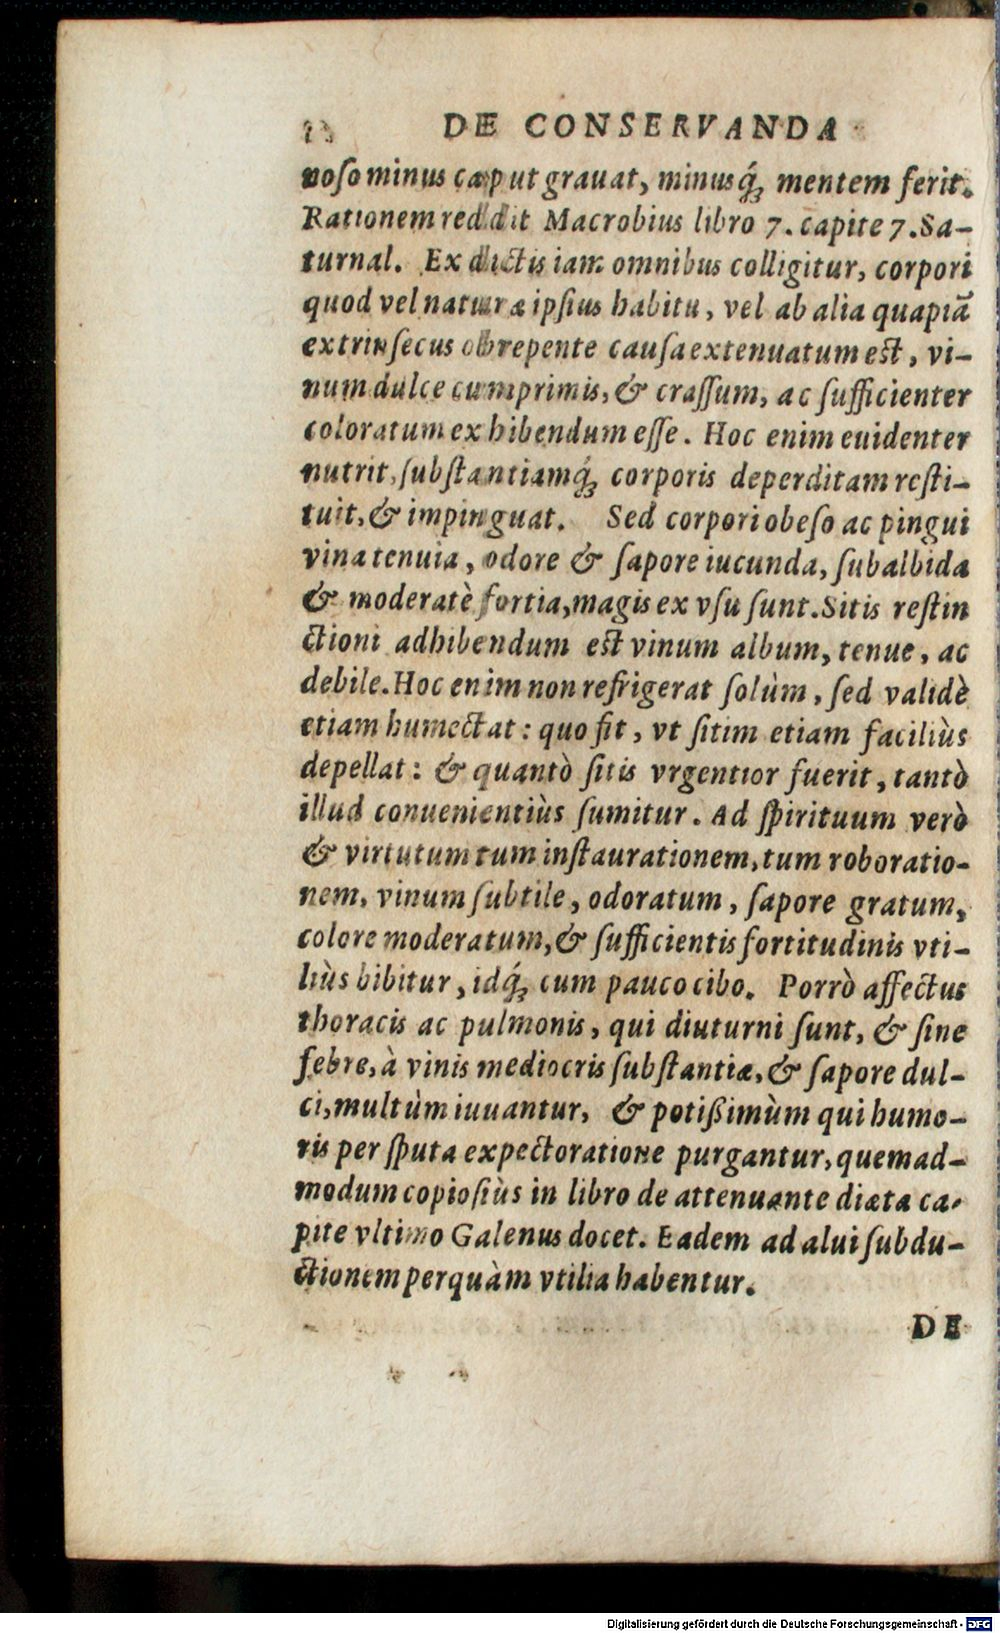 DE CONSERVANDA
noſo minus caput grauat, minusq́; mentem ferit.
Rationem reddit Macrobius libro 7. capite 7. Sa-
turnal. Ex dictis iam omnibus colligitur, corpori
quod vel naturæ ipſius habitu, vel ab alia quapiã
extrinſecus obrepente cauſa extenuatum eſt, vi-
num dulce cumprimis, & craſſum, ac ſufficienter
coloratum exhibendum eſſe. Hoc enim euidenter
nutrit, ſubſtantiamq́; corporis deperditam reſti-
tuit, & impinguat. Sed corpori obeſo ac pingui
vina tenuia, odore & ſapore iucunda, ſubalbida
& moderatè fortia, magis ex vſu ſunt. Sitis reſtin
ctioni adhibendum eſt vinum album, tenue, ac
debile. Hoc enim non refrigerat ſolùm, ſed validè
etiam humectat: quo fit, vt ſitim etiam faciliùs
depellat: & quantò ſitis vrgentior fuerit, tantò
illud conuenientiùs ſumitur. Ad ſpirituum verò
& virtutum tum inſtaurationem, tum roboratio-
nem, vinum ſubtile, odoratum, ſapore gratum,
colore moderatum, & ſufficientis fortitudinis vti-
liùs bibitur, idq́; cum pauco cibo. Porrò affectus
thoracis ac pulmonis, qui diuturni ſunt, & ſine
febre, à vinis mediocris ſubſtantiæ, & ſapore dul-
ci, multùm iuuantur, & potißimùm qui humo-
ris per ſputa expectoratione purgantur, quemad-
modum copioſiùs in libro de attenuante diæta ca-
pite vltimo Galenus docet. Eadem ad alui ſubdu-
ctionem perquàm vtilia habentur.
DE
Digitalisierung gefördert durch die Deutsche Forschungsgemeinschaft - DFG